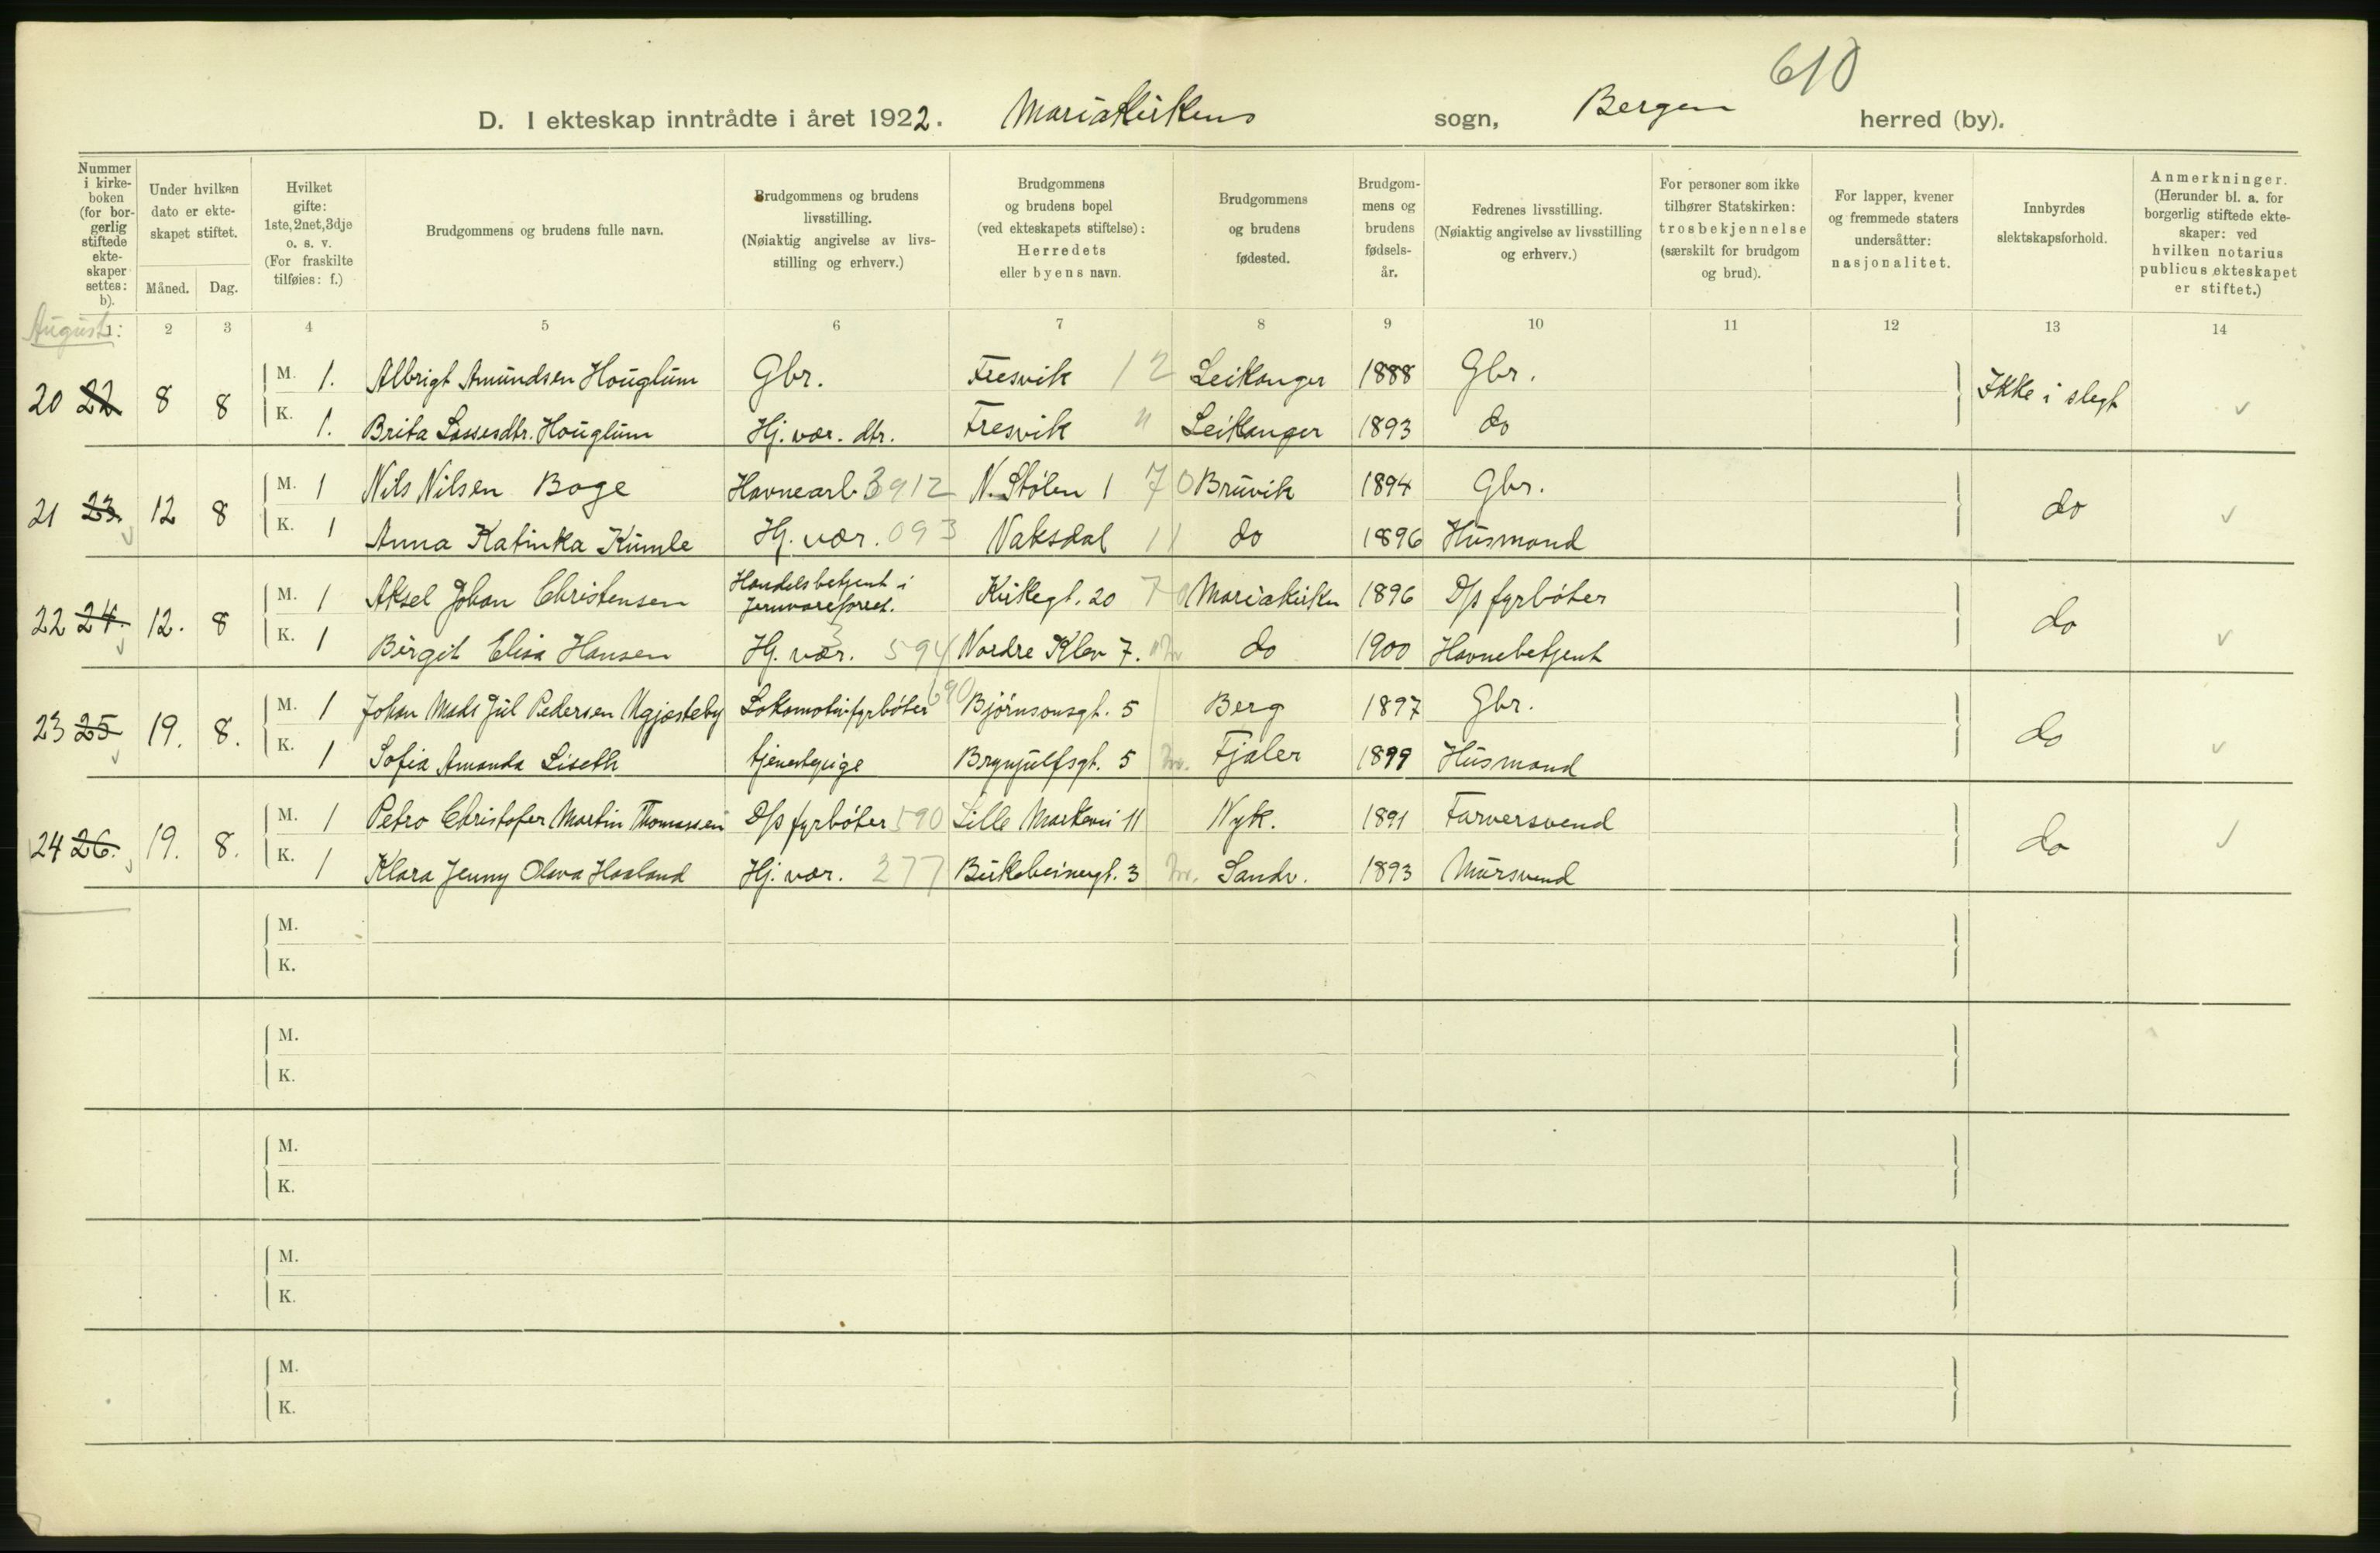 610
D. I ekteskap inntrådte i året 1922. Mariakirkens sogn, Bergen herred (by).
Nummer i kirke-boken (for bor-gerlig stiftede ekte-skaper settes: b).
Under hvilken dato er ekte-skapet stiftet.
Måned. Dag.
Hvilket gifte: 1ste, 2net, 3dje o. s. v. (For fraskilte tilføies: f.)
Brudgommens og brudens fulle navn.
Brudgommens og brudens livsstilling. (Nøiaktig angivelse av livs-stilling og erhverv.)
Brudgommens og brudens bopel (ved ekteskapets stiftelse): Herredets eller byens navn.
Brudgommens og brudens fødested.
Brudgom-mens og brudens fødsels-år.
Fedrenes livsstilling. (Nøiaktig angivelse av livsstilling og erhverv.)
For personer som ikke tilhører Statskirken: trosbekjennelse (særskilt for brudgom og brud).
For lapper, kvener og fremmede staters undersåtter: nasjonalitet.
Innbyrdes slektskapsforhold.
Anmerkninger. (Herunder bl. a. for borgerlig stiftede ekte-skaper: ved hvilken notarius publicus ekteskapet er stiftet.)
August:
1 2 3 4 5 6 7 8 9 10 11 12 13 14
20 22 8 8 M. 1. Albrigt Amundsen Houglum Gbr. Fresvik 12 Leikanger 1888 Gbr. Ikke i slegt
K. 1. Brita Lassesdtr. Houglum Hj. vær. dtr. Fresvik 11 Leikanger 1893 do
21 23. 12 8 M. 1 Nils Nilsen Boge Havnearb. 3912 N. Stølen 1 70 Bruvik 1894 Gbr. do
K. 1 Anna Katinka Kumle Hj. vær. 093 Vaksdal 11 do 1896 Husmand
22 24. 12. 8 M. 1 Aksel Johan Christensen Handelsbetjent i Jernvareforret. Kirkegt. 20 70 Mariakirken 1896 D/s fyrbøter do
K. 1 Birgit Elisa Hansen Hj. vær. 594 Nordre Klev 7. do 1900 Havnebetjent
23 25 19. 8. M. 1 Johan Mads Jul Pedersen Ugjæsteby Lokomotivfyrbøter 690 Bjørnsonsgt. 5 Berg 1897 Gbr. do
K. 1 Sofia Amanda Liseth tjenestepige Brynjulfsgt. 5 Fjaler 1899 Husmand
24 26. 19. 8. M. 1 Petro Christofer Martin Thomassen D/s fyrbøter 590 Lille Markevei 11 Nyk. 1891 Farversvend do
K. 1 Klara Jenny Olava Haaland Hj. vær. 277 Birkebeinergt. 3 Sandv. 1893 Mursvend
M.
K.
M.
K.
M.
K.
M.
K.
M.
K.